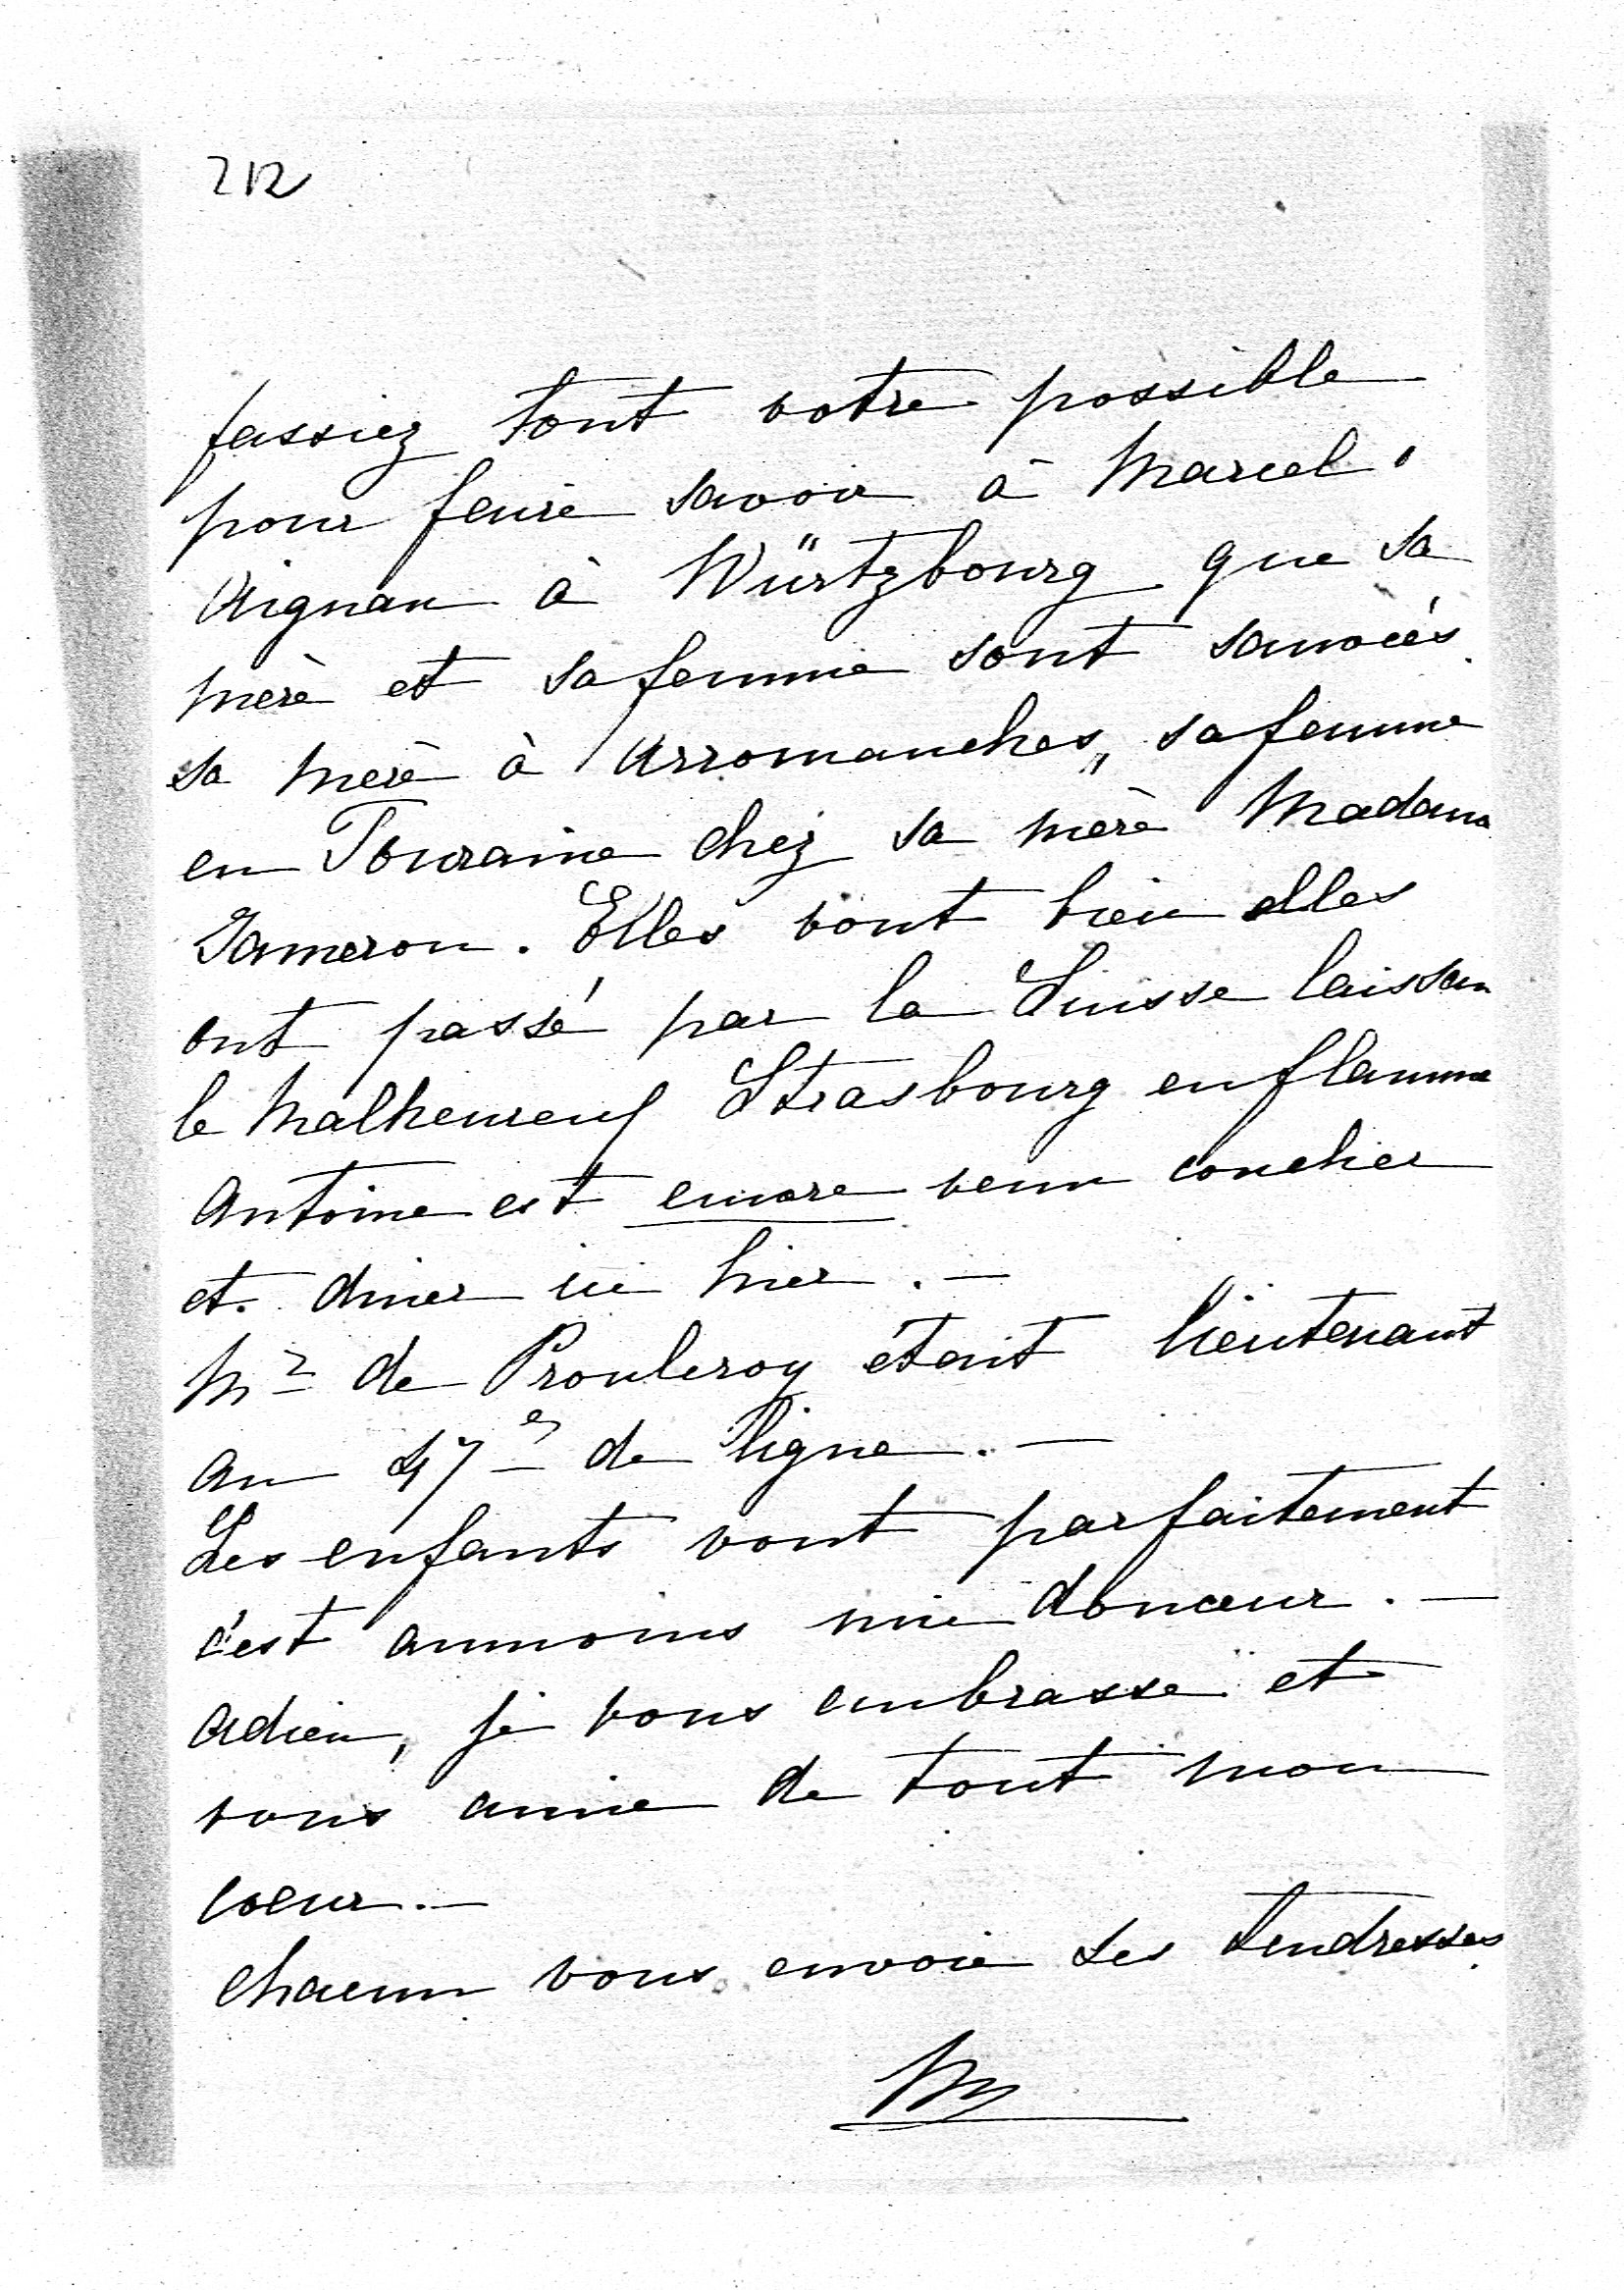 212
fassiez tout votre possible
pour faire savoir à Marcel
Aignan à Würtzbourg que sa
mère et sa femme sont sauvées
sa mère à Arromanches, sa femme
en Touraine chez sa mère Madame
Jameron. Elles vont bien elles
ont passé par la Suisse laissan
le malheureux Strasbourg en flamme
Antoine est encore venu coucher
et diner ici hier. —
Mr de Prouleroy était lieutenant
au 47e de ligne. —
Les enfants vont parfaitement
c'est aumoins une douceur. —
Adieu, je vous embrasse et
vous aime de tout mon
coeur. —
Chacun vous envoie ses tendresses
M